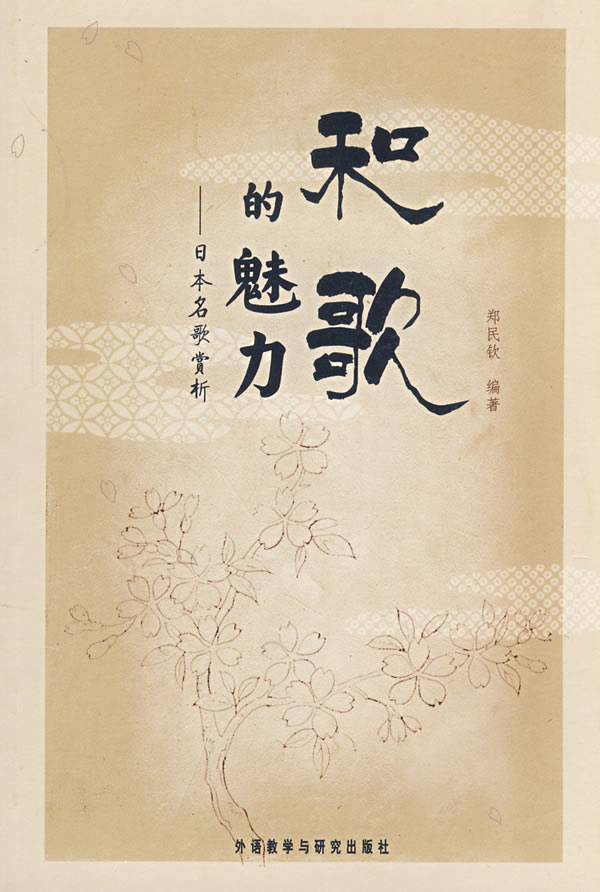 和歌
的魅力
——日本名歌赏析
郑民钦 编著
外语教学与研究出版社